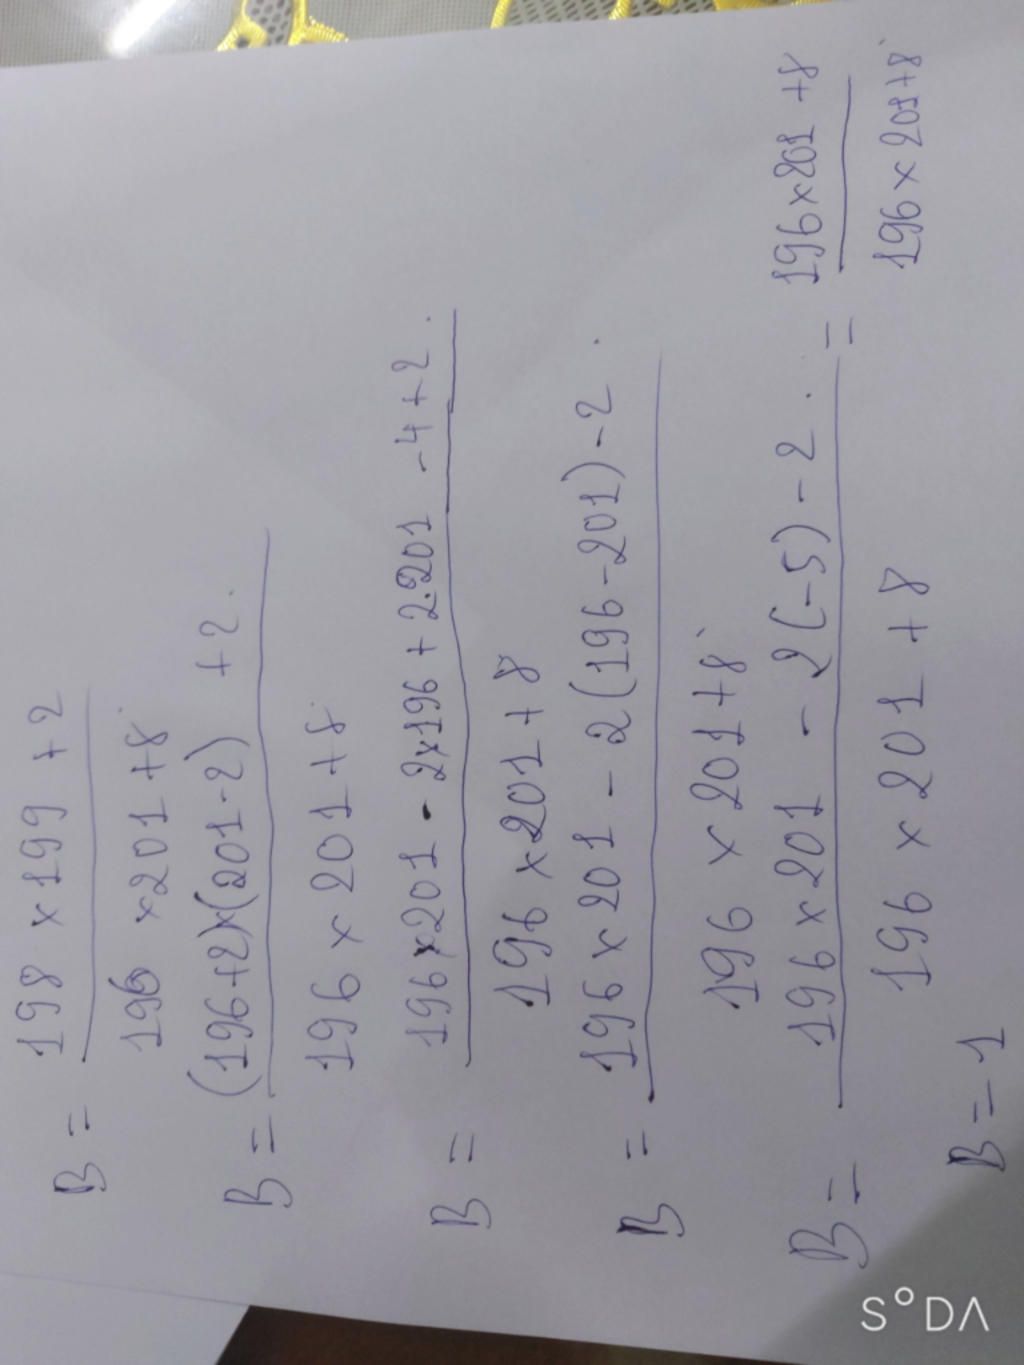 B = 198 x 199 + 2
196 x 201 + 8
B = (196+2)x(201-2) + 2.
196 x 201 + 8
B = 196 x 201 - 2x196 + 2.201 - 4 + 2.
196 x 201 + 8
B = 196 x 201 - 2(196-201) - 2.
196 x 201 + 8
B = 196 x 201 - 2(-5) - 2. = 196 x 201 + 8
196 x 201 + 8 196 x 201 + 8
B = 1
S°DA